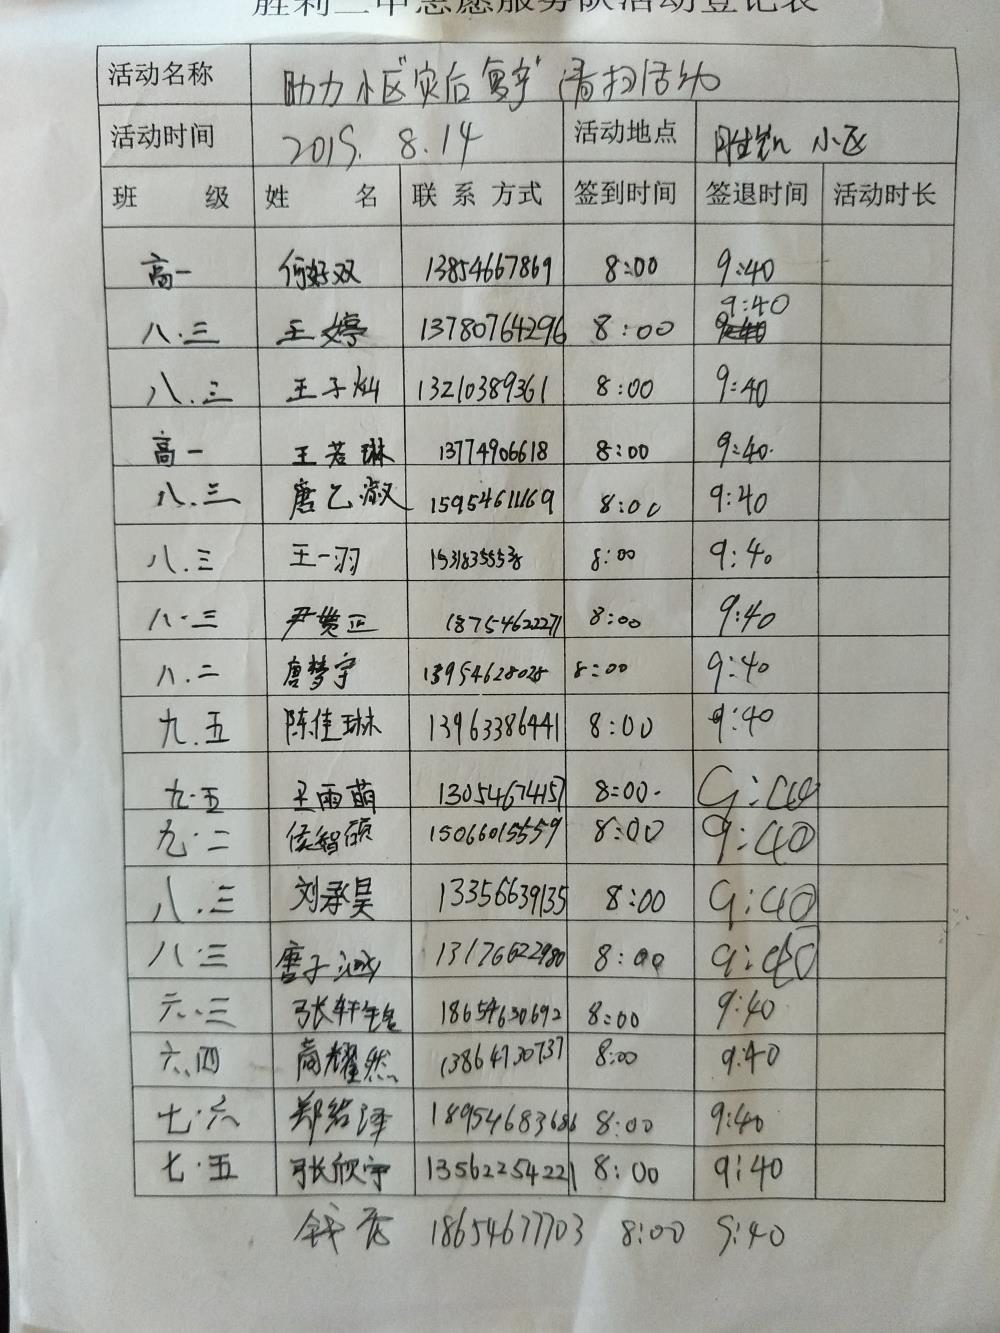 胜利二中志愿服务队活动登记表
活动名称 助力小区“灾后复辛”清扫活动
活动时间 2019.8.14 活动地点 小区
班级 姓名 联系方式 签到时间 签退时间 活动时长
高一 何好双 13854667869 8:00 9:40
八.三 王婷 13780764296 8:00 9:40
八.三 王子灿 13210389361 8:00 9:40
高一 王若琳 13774906618 8:00 9:40
八.三 唐乙淑 15954611169 8:00 9:40
八.三 王一羽 8:00 9:40
八.三 尹贯正 18754622271 8:00 9:40
八.二 唐梦宇 13954628028 8:00 9:40
九.五 陈佳琳 13963386441 8:00 9:40
九.五 王雨萌 13054674157 8:00 9:40
九.二 侯智硕 15066015559 8:00 9:40
八.三 刘承昊 13356639135 8:00 9:40
八.三 唐子诚 13176622980 8:00 9:40
六.三 张轩铭 18654630692 8:00 9:40
六.四 高耀然 13864730737 8:00 9:40
七.六 郑铭泽 18954683686 8:00 9:40
七.五 张欣宇 13562254221 8:00 9:40
18654677703 8:00 9:40